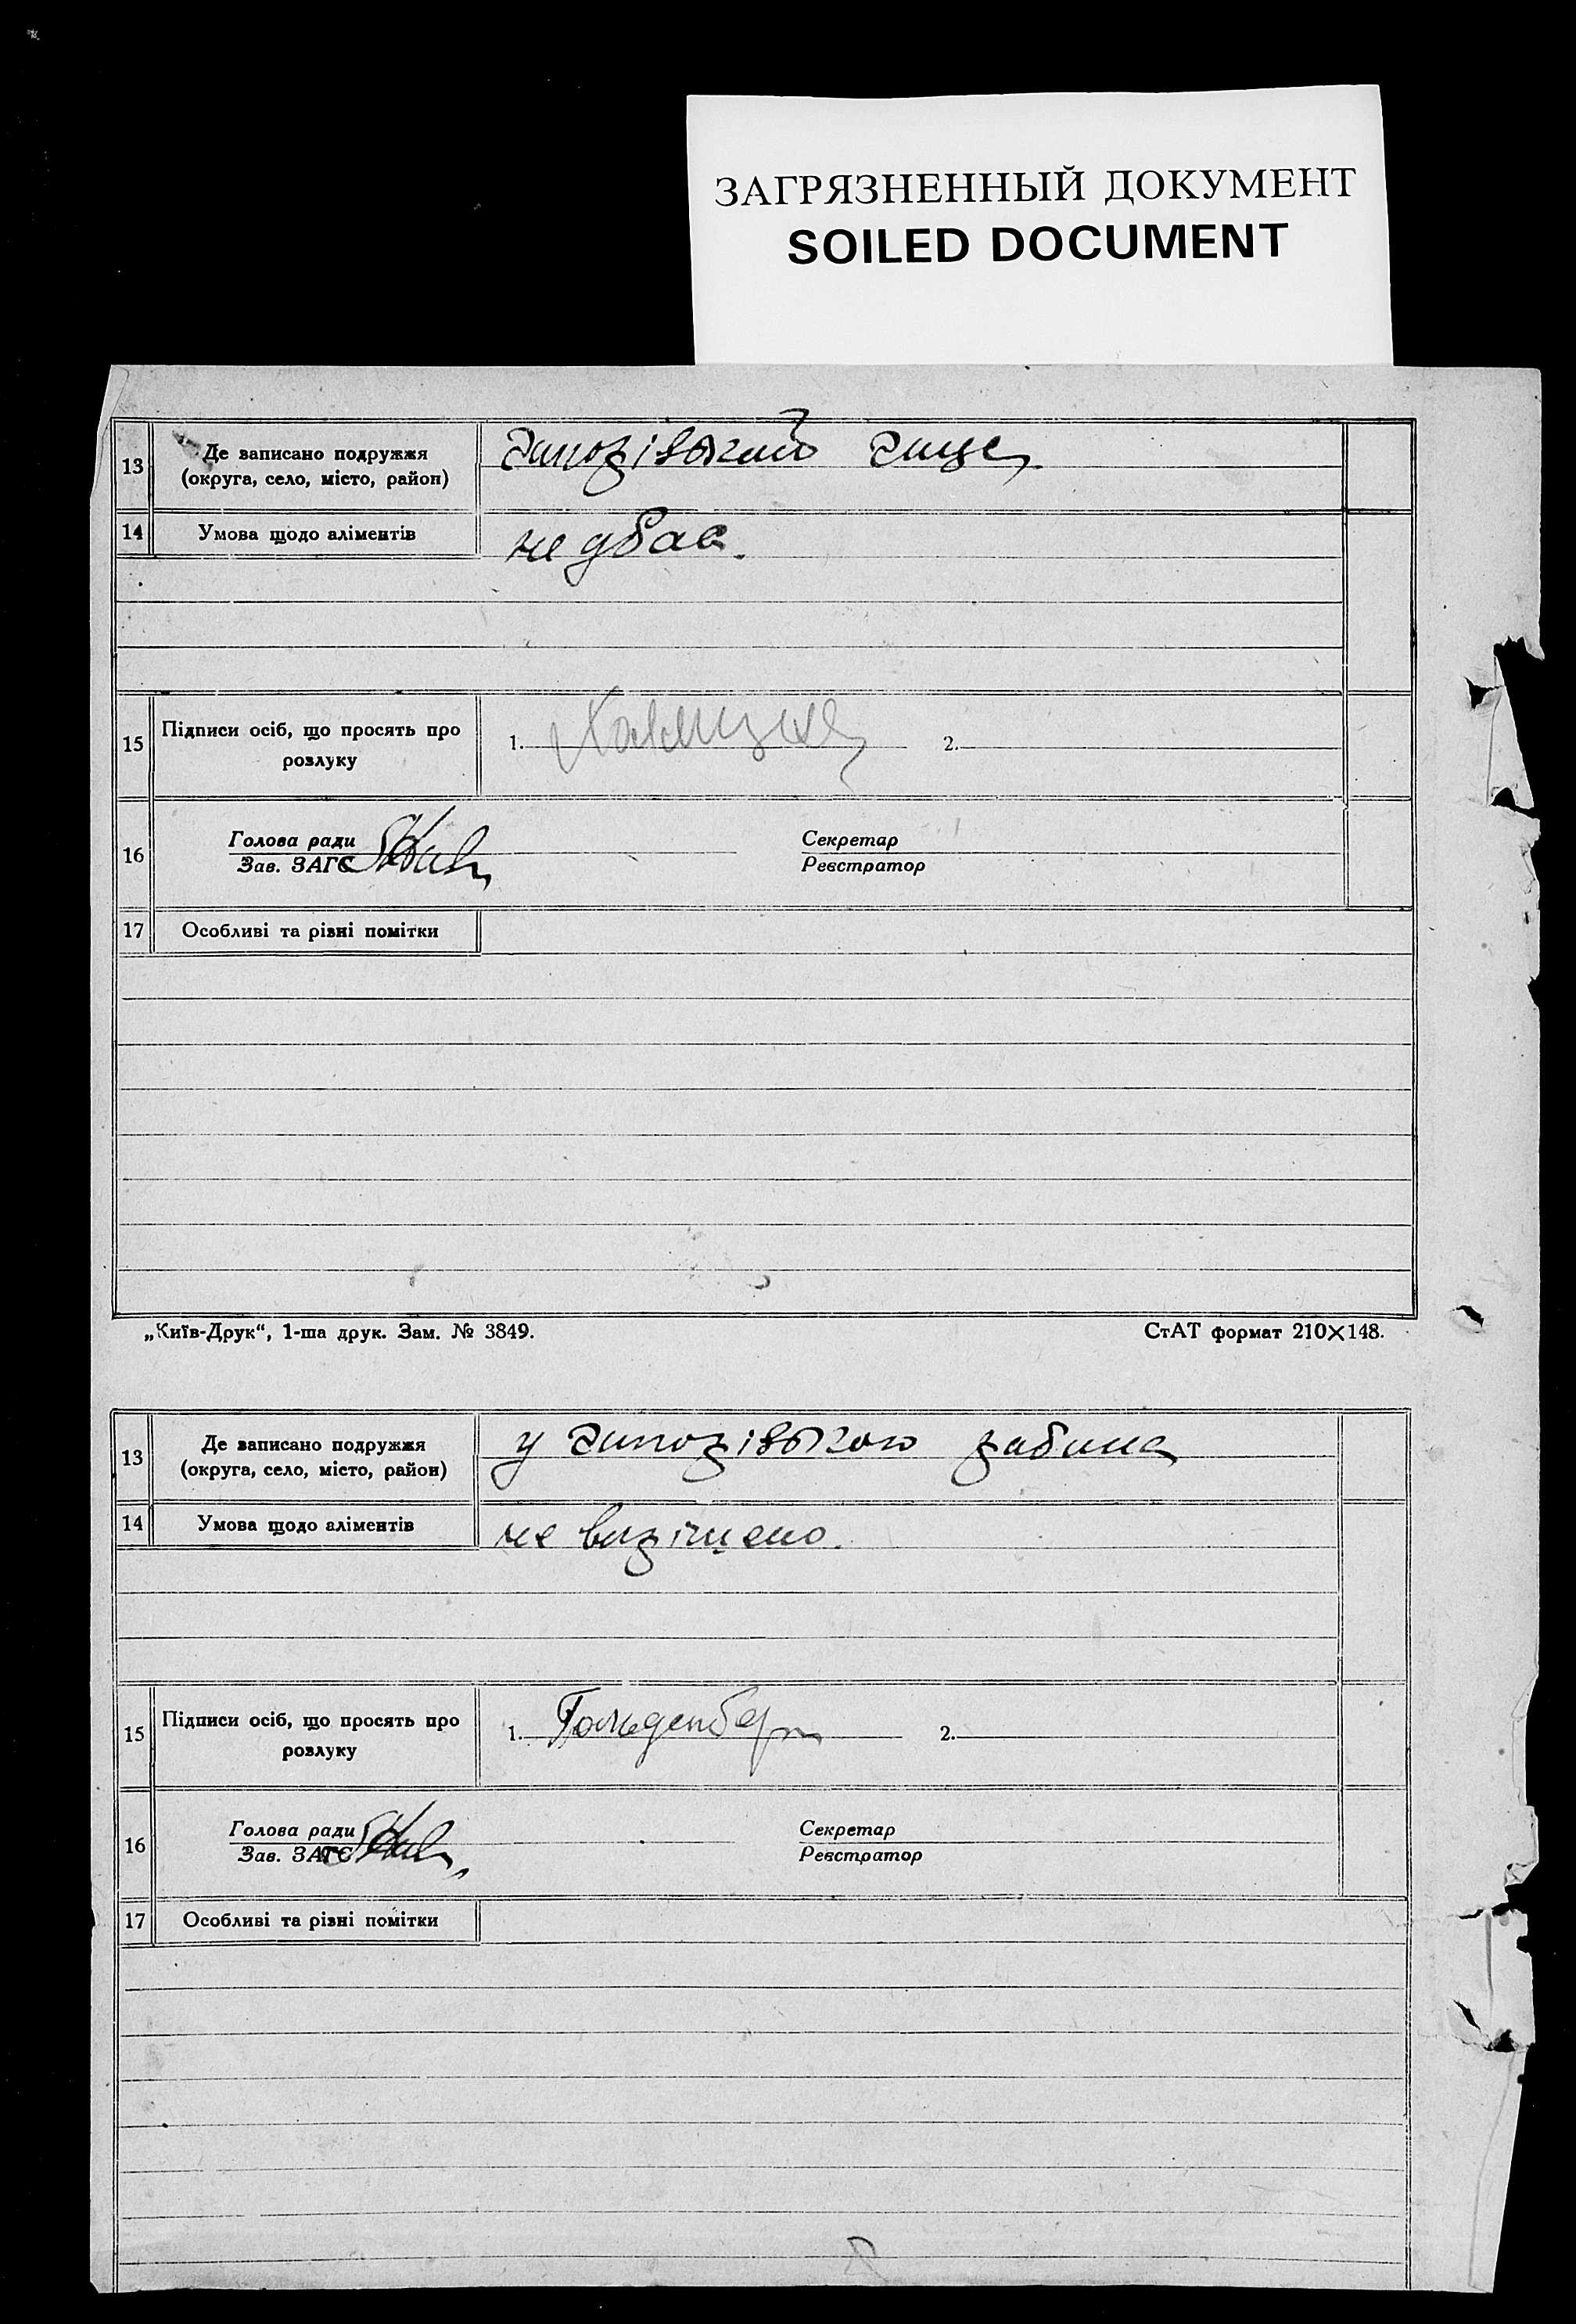 ЗАГРЯЗНЕННЫЙ ДОКУМЕНТ
SOILED DOCUMENT
13 Де записано подружжя
(округа, село, місто, район)
14 Умова щодо аліментів
не дбає.
15 Підписи осіб, що просять про
розлуку
1. 2.
16 Голова ради Секретар
Зав. ЗАГС Реєстратор
17 Особливі та різні помітки
„Київ-Друк“, 1-ша друк. Зам. № 3849. СтАТ формат 210×148.
13 Де записано подружжя у рабина
(округа, село, місто, район)
14 Умова щодо аліментів
не вирішено.
15 Підписи осіб, що просять про
розлуку
1. Гольденберг 2.
16 Голова ради Секретар
Зав. ЗАГС Реєстратор
17 Особливі та різні помітки